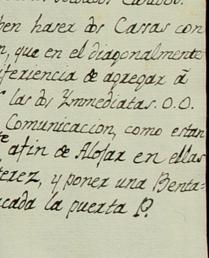 ben haser dos Cassas con
n, que en el diagonalmente
iferiencia de agregar â
las dos Ymmediatas. O. O.
Comunicacion, como estan
te afin de Alojar en ellas
terez, y poner una Benta-
cada la puerta P.